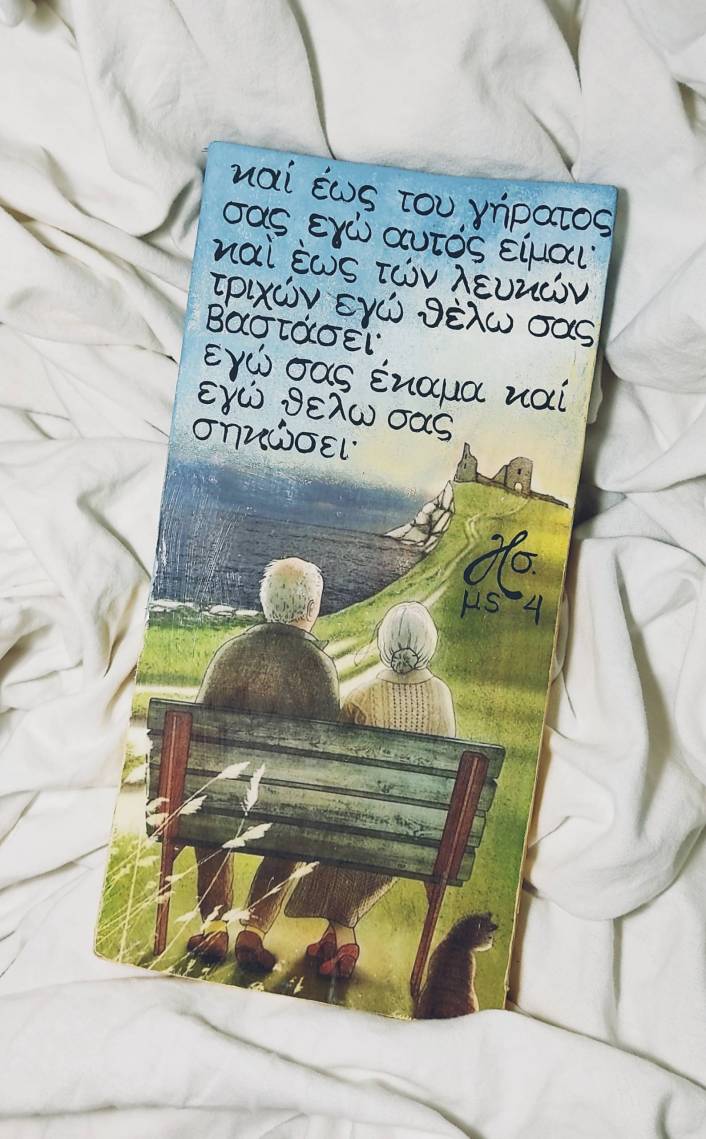 καί έως του γήρατος
σας εγώ αυτός είμαι·
καὶ ὲως τών λευκών
τριχών εγώ θὲλω σας
βαστάσει·
εγώ σας έκαμα καί
εγώ θελω σας
σηκώσει·
Ησ.
μς 4